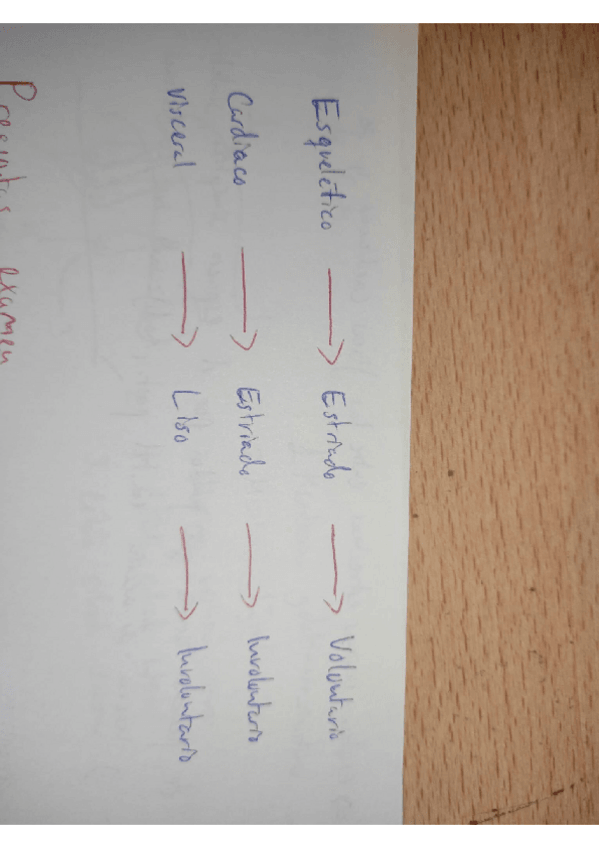 Esquelético → Estriado → Voluntario
Cardiaco → Estriado → Involuntario
Visceral → Liso → Involuntario
Preguntas examen